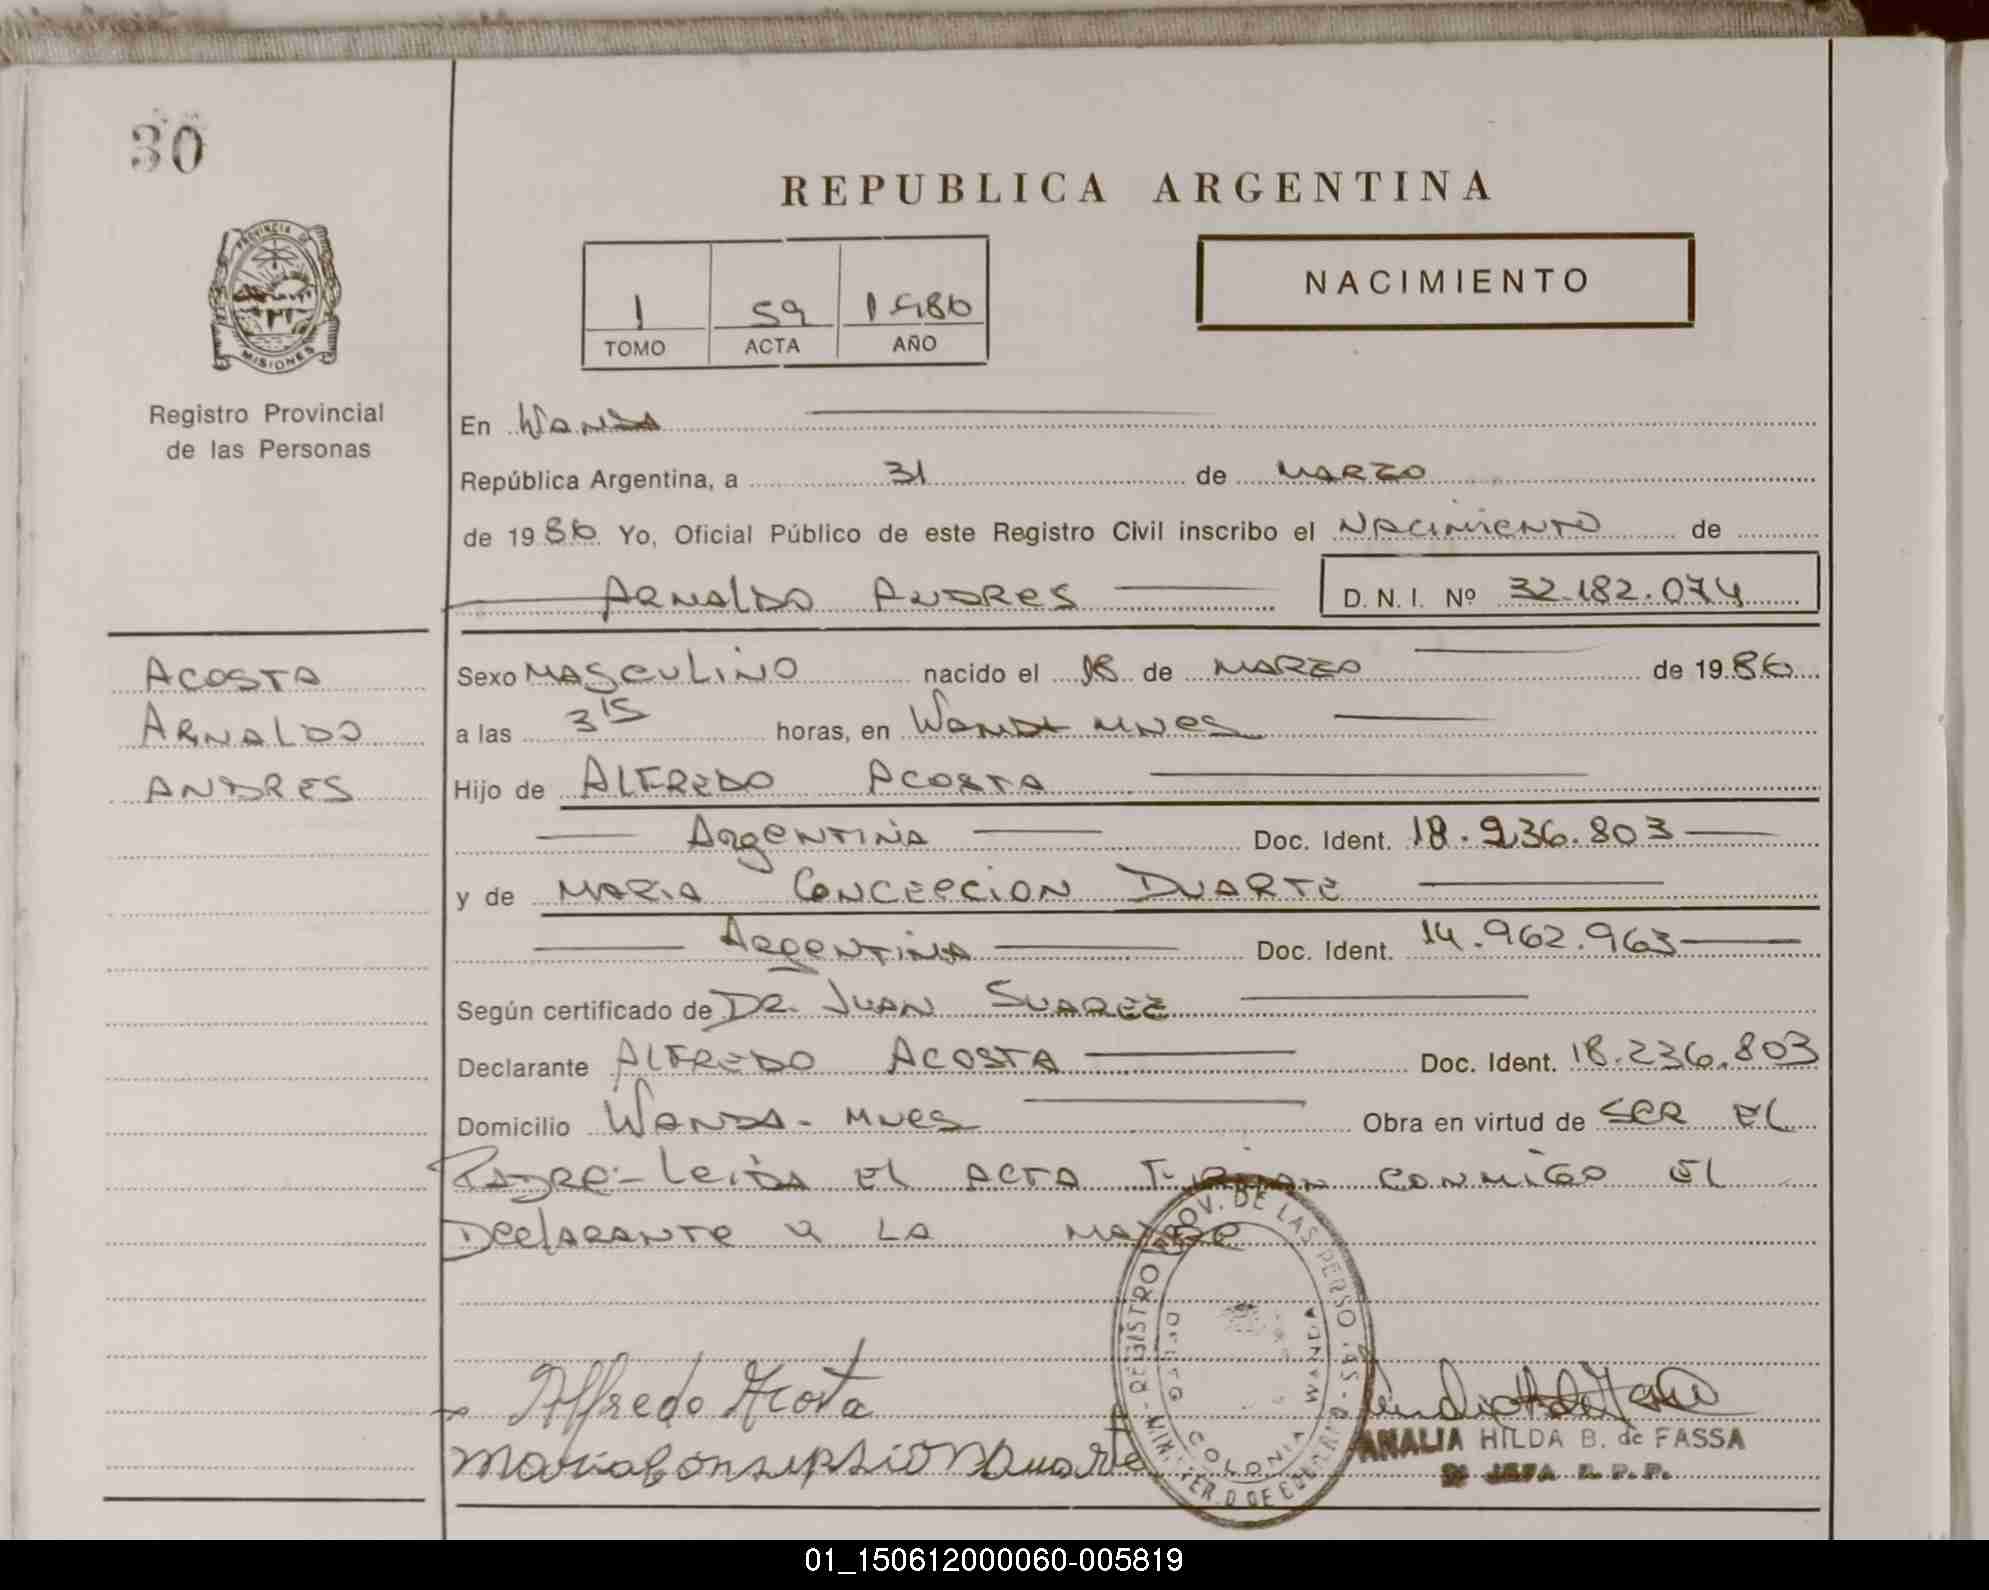 30
REPUBLICA ARGENTINA
PROVINCIA DE
MISIONES
Registro Provincial
de las Personas
1 59 1986
TOMO ACTA AÑO
NACIMIENTO
En Wanda
República Argentina, a 31 de MARZO
de 1986 Yo, Oficial Público de este Registro Civil inscribo el NACIMIENTO de
ARNALDO ANDRES D.N.I. Nº 32.182.074
ACOSTA
ARNALDO
ANDRES
Sexo MASCULINO nacido el 18 de MARZO de 1986
a las 3 15 horas, en Wanda MNES
Hijo de ALFREDO ACOSTA
ArgENTINA Doc. Ident. 18.236.803
y de MARIA CONCEPCION DUARTE
ArgENTINA Doc. Ident. 14.962.963
Según certificado de DR. JUAN SUAREZ
Declarante ALFREDO ACOSTA Doc. Ident. 18.236.803
Domicilio WANDA - MNES Obra en virtud de SER EL
PADRE - LEIDA EL ACTA FIRMAN CONMIGO EL
DECLARANTE Y LA MADRE
REGISTRO PROV. DE LAS PERSO AS
COLONIA WANDA
Alfredo Acosta
Maria Consepsion Duarte
ANALIA HILDA B. de FASSA
JEFA R. P. P.
01_150612000060-005819